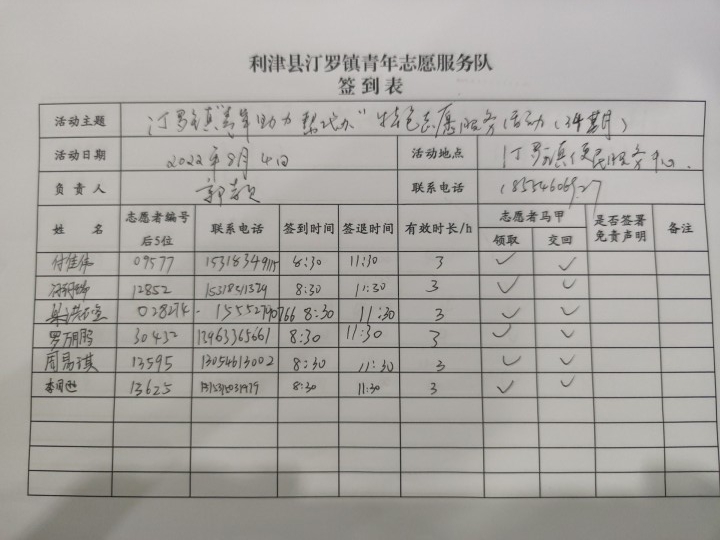 利津县汀罗镇青年志愿服务队
签到表
活动主题 汀罗镇"青年助力 帮代办"特色志愿服务活动(34期)
活动日期 2022年8月4日 活动地点 汀罗镇便民服务中心.
负责人 联系电话
姓 名 志愿者编号后5位 联系电话 签到时间 签退时间 有效时长/h 志愿者马甲 领取 交回 是否签署免责声明 备注
付佳伟 09577 8:30 11:30 3 ✓ ✓
12852 8:30 11:30 3 ✓ ✓
028274 15552790766 8:30 11:30 3 ✓ ✓
罗万鹏 30432 8:30 11:30 3 ✓ ✓
周昜琪 13595 13054613002 8:30 11:30 3 ✓ ✓
13625 8:30 11:30 3 ✓ ✓